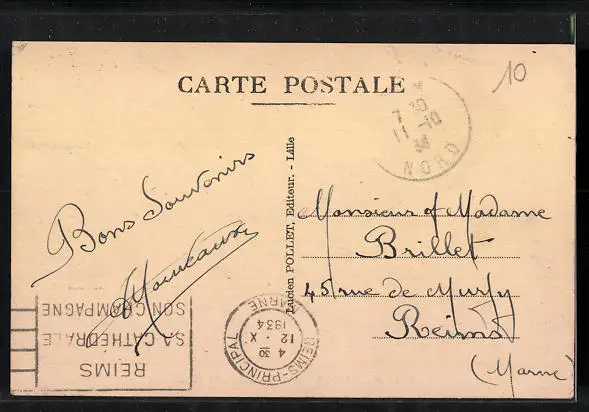 CARTE POSTALE
10
7 30
11 - 10
34
NORD
Bons Souvenirs
Lucien POLLET, Editeur. - Lille
Monsieur et Madame
Brillet
45 rue de
Reims
(Marne)
REIMS
SA CATHEDRALE
SON CHAMPAGNE
REIMS-PRINCIPAL
4 30
12 · X
1934
MARNE